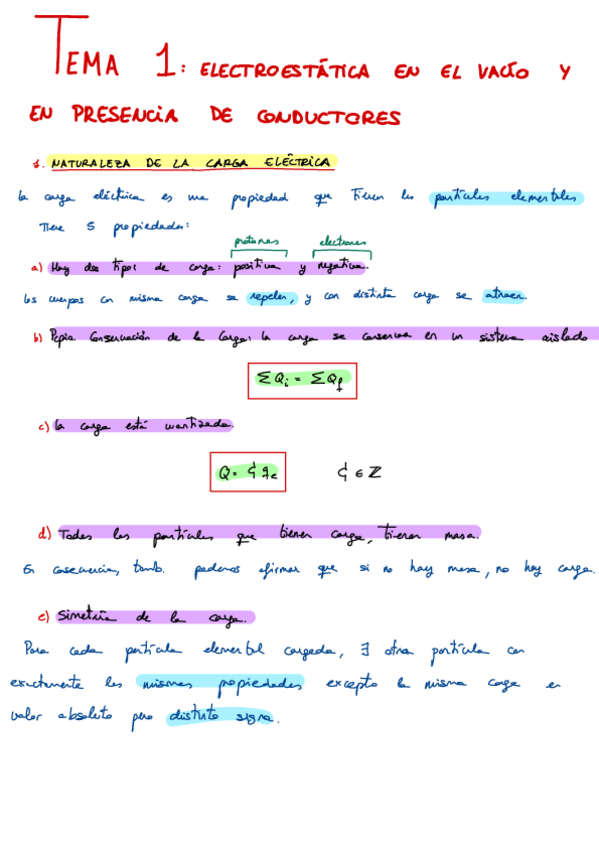 TEMA 1: ELECTROESTÁTICA EN EL VACÍO Y
EN PRESENCIA DE CONDUCTORES
1. NATURALEZA DE LA CARGA ELÉCTRICA
La carga eléctrica es una propiedad que tienen las partículas elementales
Tiene 5 propiedades:
protones electrones
a) Hay dos tipos de carga: positiva y negativa.
Los cuerpos con misma carga se repelen, y con distinta carga se atraen.
b) Ppio Conservación de la Carga: la carga se conserva en un sistema aislado
ΣQi = ΣQf
c) La carga está cuantizada.
Q = ζ qe ζ ∈ ℤ
d) Todas las partículas que tienen carga, tienen masa.
En consecuencia, tamb. podemos afirmar que si no hay masa, no hay carga.
e) Simetría de la carga.
Para cada partícula elemental cargada, ∃ otra partícula con
exactamente las mismas propiedades excepto la misma carga en
valor absoluto pero distinto signo.